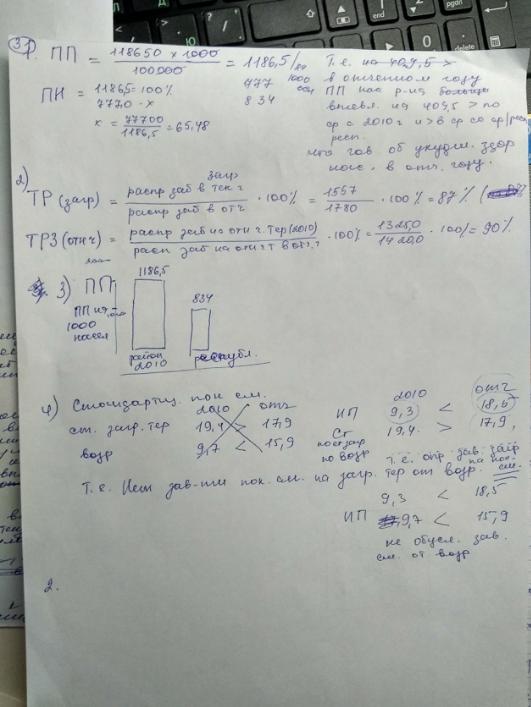 3р. ПП = 118650 × 1000 / 100000 = 1186,5/
477
834
1000
Т.е. на 409,5 >
в отчетном году
ПП нас р-на больше
на 409,5 > по
ср с 2010 г и > в ср со ср/респ
респ.
что гов. об ухудш. здор
насе. в отч. году.
ПН = 1186,5 = 100%
7770 - х
х = 77700 / 1186,5 = 65,48
2)
ТР (загр) = распр заб в тек г загр / распр заб в отч · 100% = 1557 / 1780 · 100% = 87%
ТРЗ (отч г) = распр заб на отч г. тер (2010) / расп заб на отч г в отч. г · 100% = 1325,0 / 1420,0 · 100% = 90%
3) ПП
1186,5
834
ПП на
1000
насел
район
2010
республ.
4) Стандартиз. пок см.
2010 отч
ст. загр. тер 19,4 > 17,9
возр 9,7 < 15,9
2010 отч
ИП 9,3 < 18,5
Ст 19,4 > 17,9,
по загр
по возр
т.е. опр зав. загр
на пок.
см.
Т.е. Нет зав-ти пок. см. на загр. тер от возр.
9,3 < 18,5
ИП 9,7 < 15,9
не обусл. зав.
см. от возр
2.